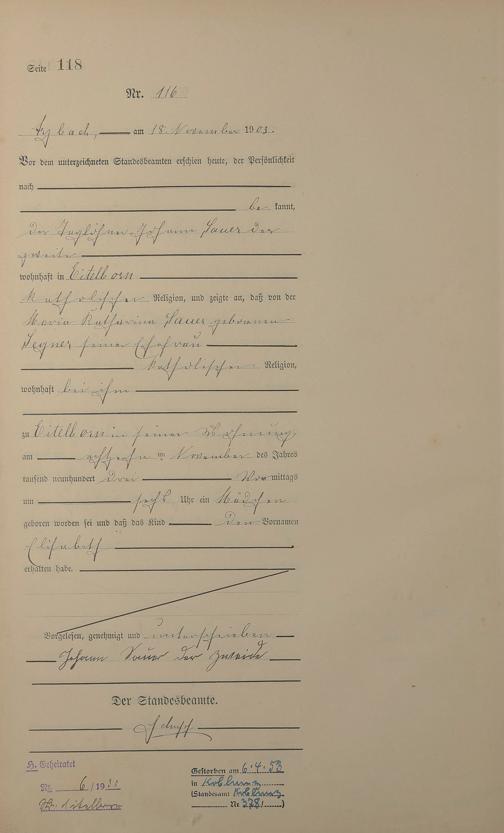 Seite 118
Nr. 116
Arzbach, am 18. November 1903.
Vor dem unterzeichneten Standesbeamten erschien heute, der Persönlichkeit
nach
be kannt,
der Taglöhner Johann Sauer der
zweite
wohnhaft in Eitelborn
katholischer Religion, und zeigte an, daß von der
Maria Katharina Sauer geborenen
seiner Ehefrau
katholischer Religion,
wohnhaft bei ihm
zu Eitelborn in seiner Wohnung
am achtzehnten November des Jahres
tausend neunhundert drei Vor mittags
um sechs Uhr ein Mädchen
geboren worden sei und daß das Kind den Vornamen
Elisabeth
erhalten habe.
Vorgelesen, genehmigt und unterschrieben
Johann Sauer der zweite
Der Standesbeamte.
H. Geheiratet
Nr. 6/19
Eitelborn
Gestorben am 6.4.53
in Koblenz
(Standesamt Koblenz
Nr 378/)